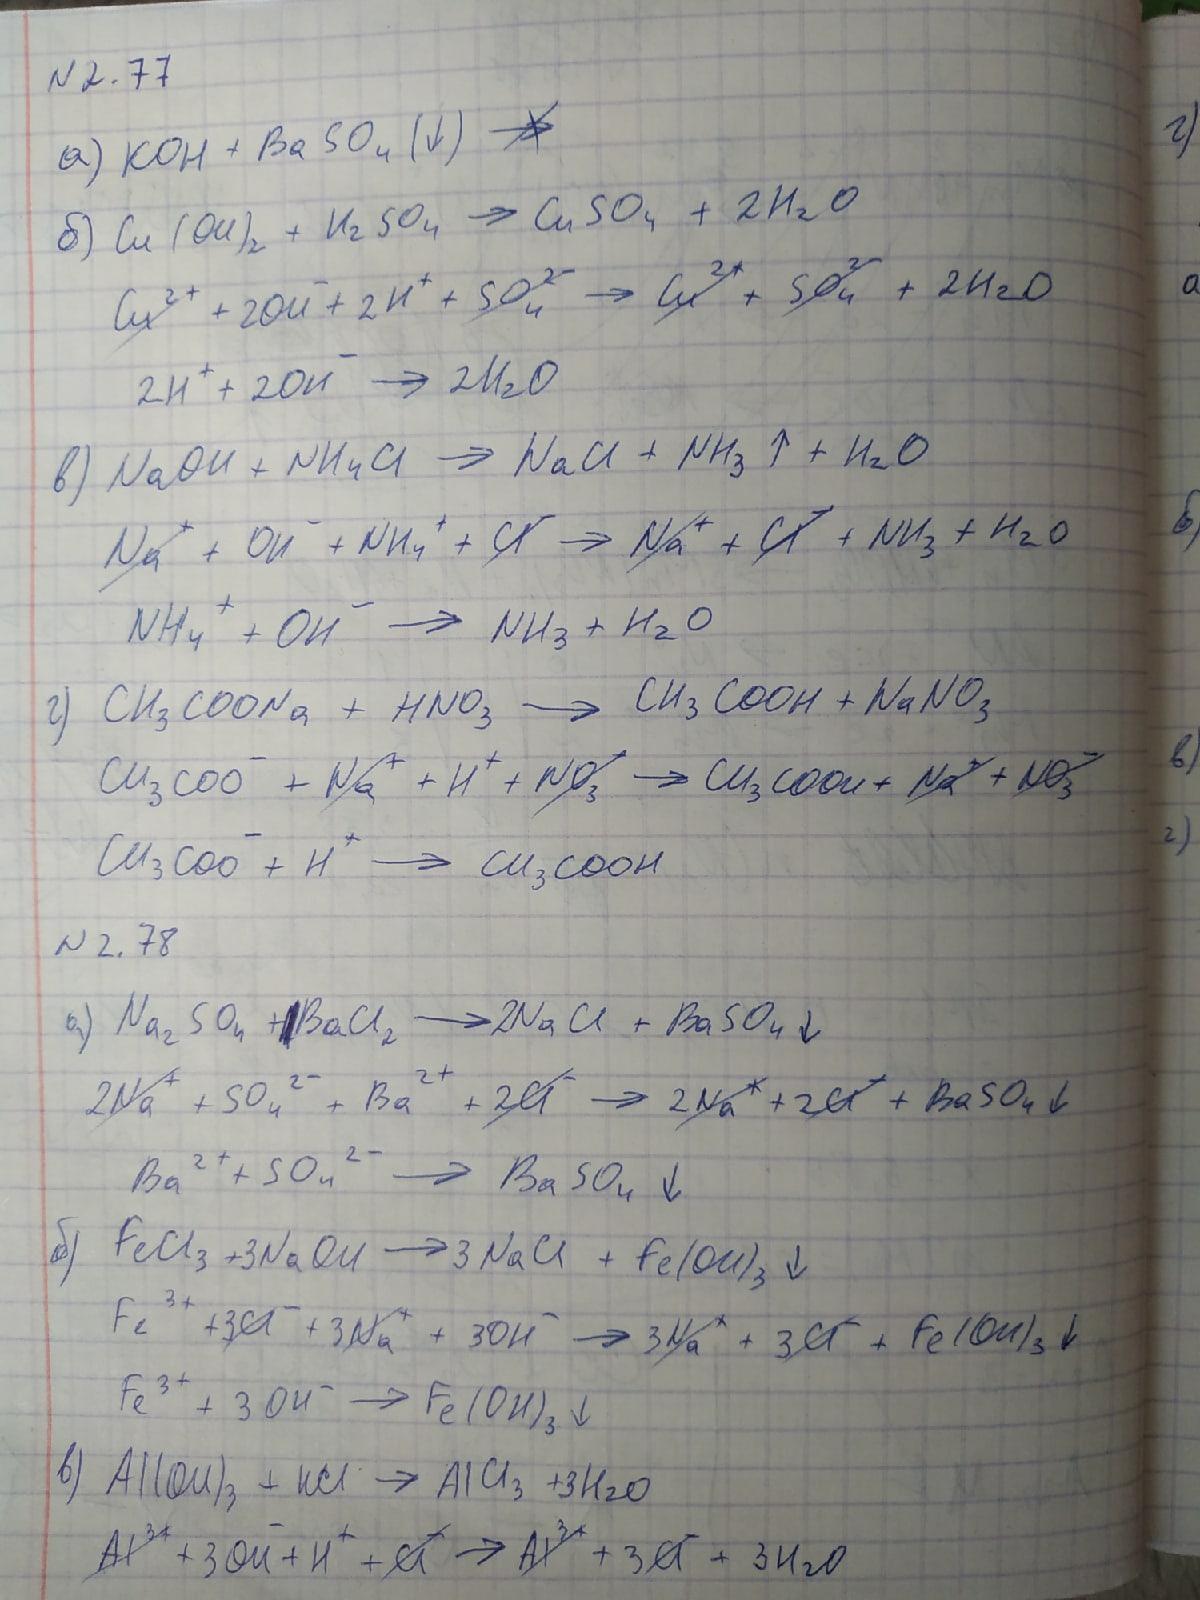 N 2.77
а) KOH + BaSO₄ (↓) ↛
б) Cu(OH)₂ + H₂SO₄ → CuSO₄ + 2H₂O
Cu²⁺ + 2OH⁻ + 2H⁺ + SO₄²⁻ → Cu²⁺ + SO₄²⁻ + 2H₂O
2H⁺ + 2OH⁻ → 2H₂O
в) NaOH + NH₄Cl → NaCl + NH₃↑ + H₂O
Na⁺ + OH⁻ + NH₄⁺ + Cl⁻ → Na⁺ + Cl⁻ + NH₃ + H₂O
NH₄⁺ + OH⁻ → NH₃ + H₂O
г) CH₃COONa + HNO₃ → CH₃COOH + NaNO₃
CH₃COO⁻ + Na⁺ + H⁺ + NO₃⁻ → CH₃COOH + Na⁺ + NO₃⁻
CH₃COO⁻ + H⁺ → CH₃COOH
N 2.78
а) Na₂SO₄ + BaCl₂ → 2NaCl + BaSO₄↓
2Na⁺ + SO₄²⁻ + Ba²⁺ + 2Cl⁻ → 2Na⁺ + 2Cl⁻ + BaSO₄↓
Ba²⁺ + SO₄²⁻ → BaSO₄↓
б) FeCl₃ + 3NaOH → 3NaCl + Fe(OH)₃↓
Fe³⁺ + 3Cl⁻ + 3Na⁺ + 3OH⁻ → 3Na⁺ + 3Cl⁻ + Fe(OH)₃↓
Fe³⁺ + 3OH⁻ → Fe(OH)₃↓
в) Al(OH)₃ + HCl → AlCl₃ + 3H₂O
Al³⁺ + 3OH⁻ + H⁺ + Cl⁻ → Al³⁺ + 3Cl⁻ + 3H₂O
г)
а
б)
в)
г)